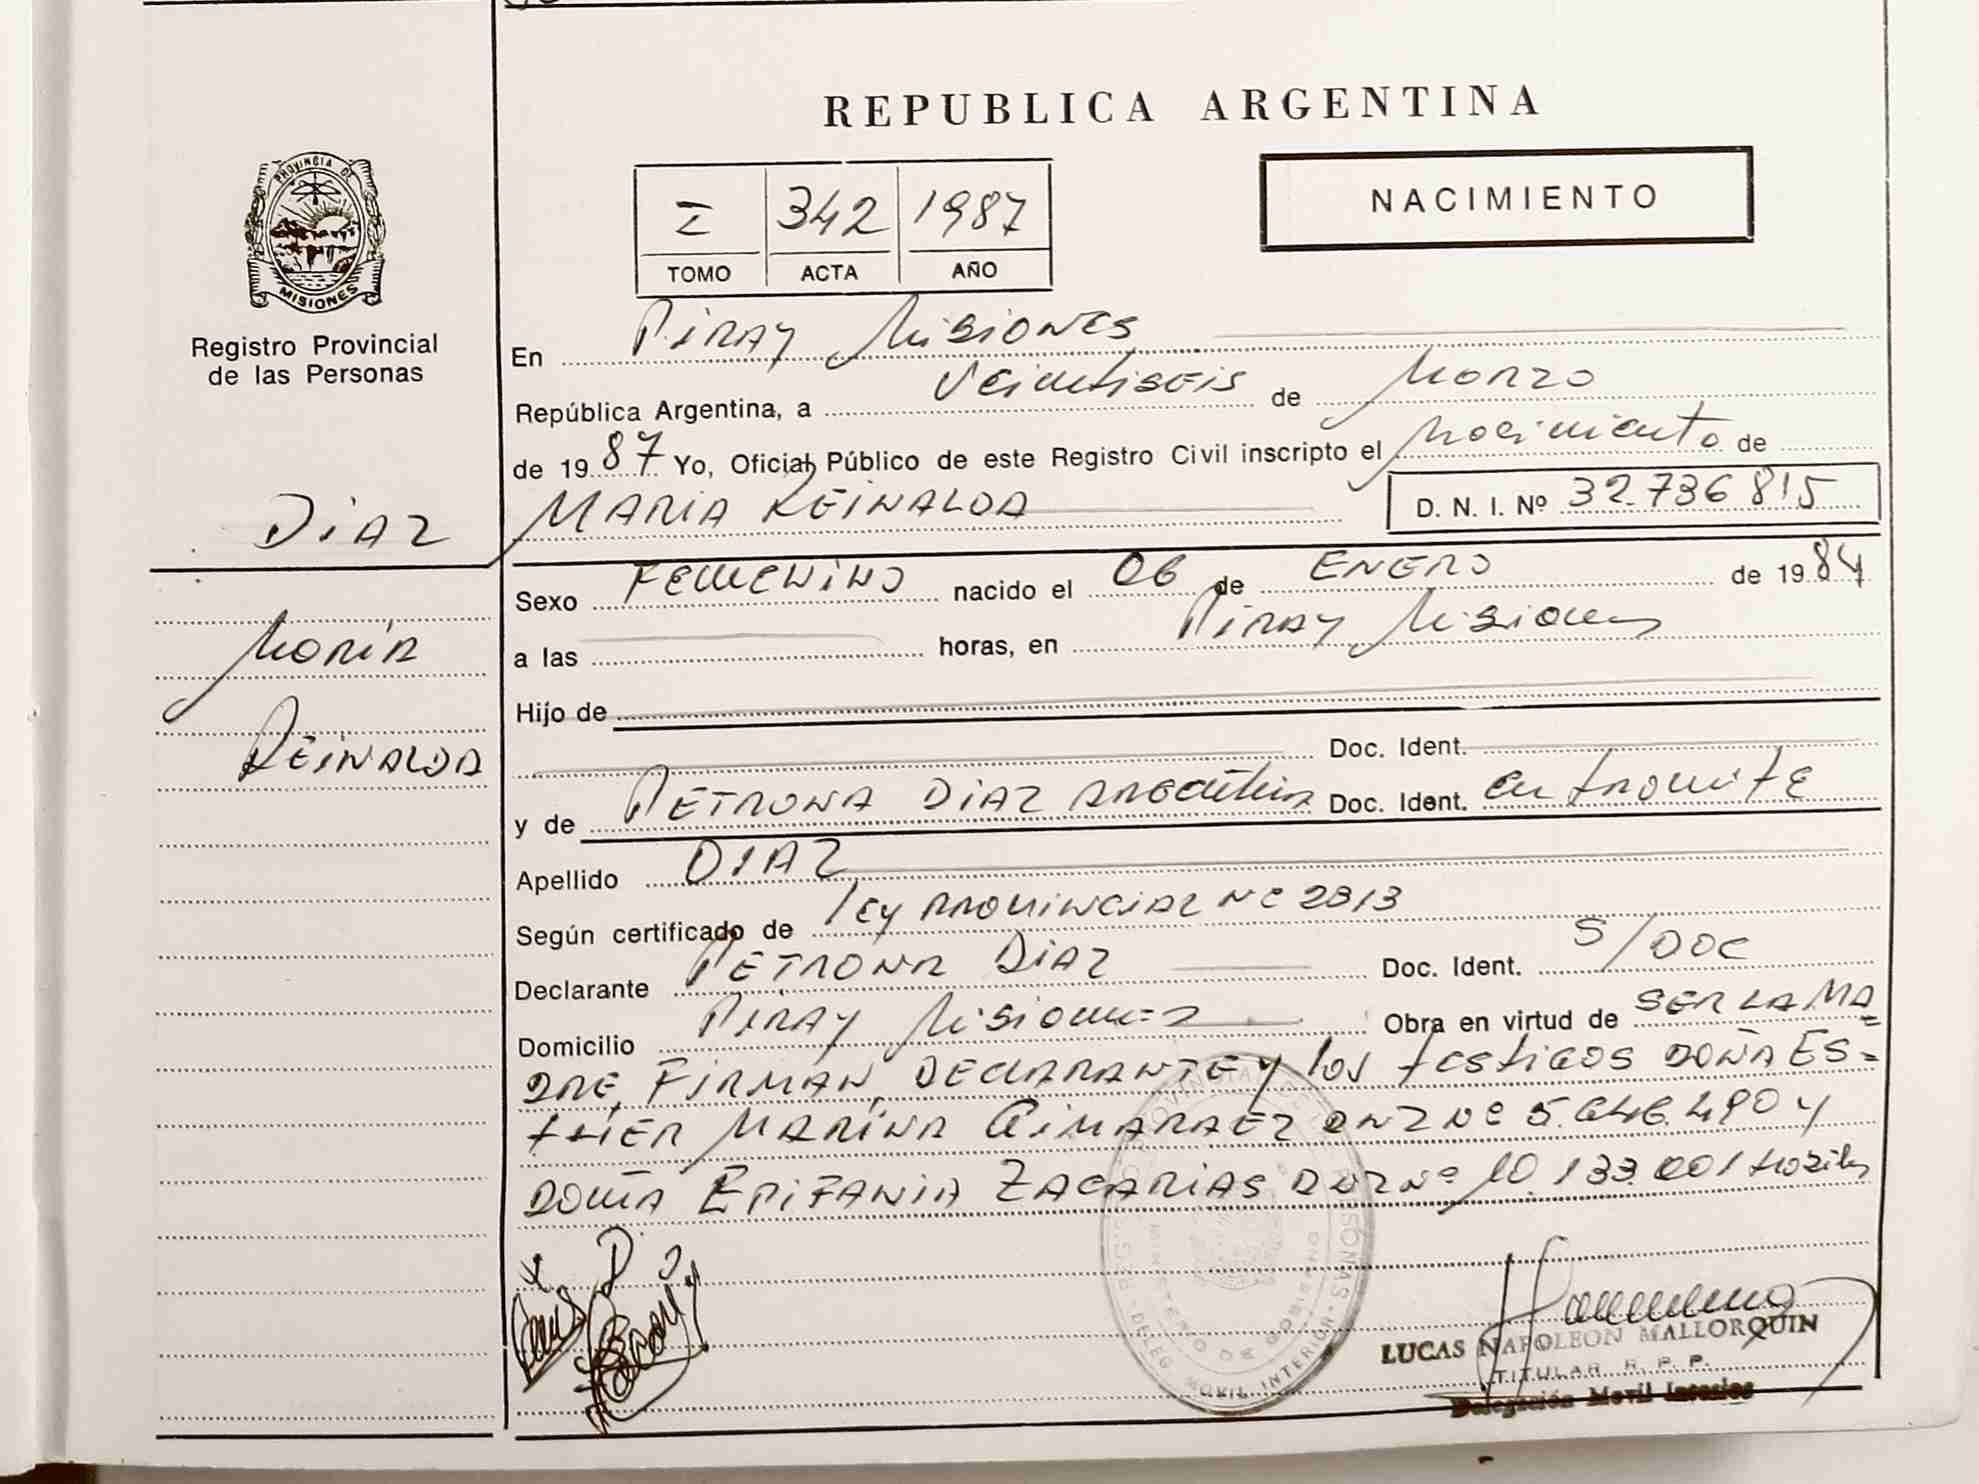 REPUBLICA ARGENTINA
PROVINCIA DE
MISIONES
Registro Provincial
de las Personas
I 342 1987
TOMO ACTA AÑO
NACIMIENTO
En Piray Misiones
República Argentina, a Veintiseis de Marzo
de 1987 Yo, Oficial Público de este Registro Civil inscripto el Nacimiento de
DIAZ MARIA REINALDA D. N. I. Nº 32.736.815
Sexo FEMENINO nacido el 06 de ENERO de 1984
María
a las horas, en Piray Misiones
Hijo de
REINALDA
Doc. Ident.
y de PETRONA DIAZ ARGENTINA Doc. Ident. en tramite
Apellido DIAZ
Según certificado de Ley PROVINCIAL Nº 2313
Declarante PETRONA DIAZ Doc. Ident. S/DOC
Domicilio Piray Misiones Obra en virtud de SER LA MA=
DRE, FIRMAN, DECLARANTE y los testigos DOÑA ES=
THER MARINA
DOÑA EPIFANIA ZACARIAS DNI Nº 10.133.001
P D
LUCAS NAPOLEON MALLORQUIN
TITULAR R. P. P.
Delegación Movil Interior